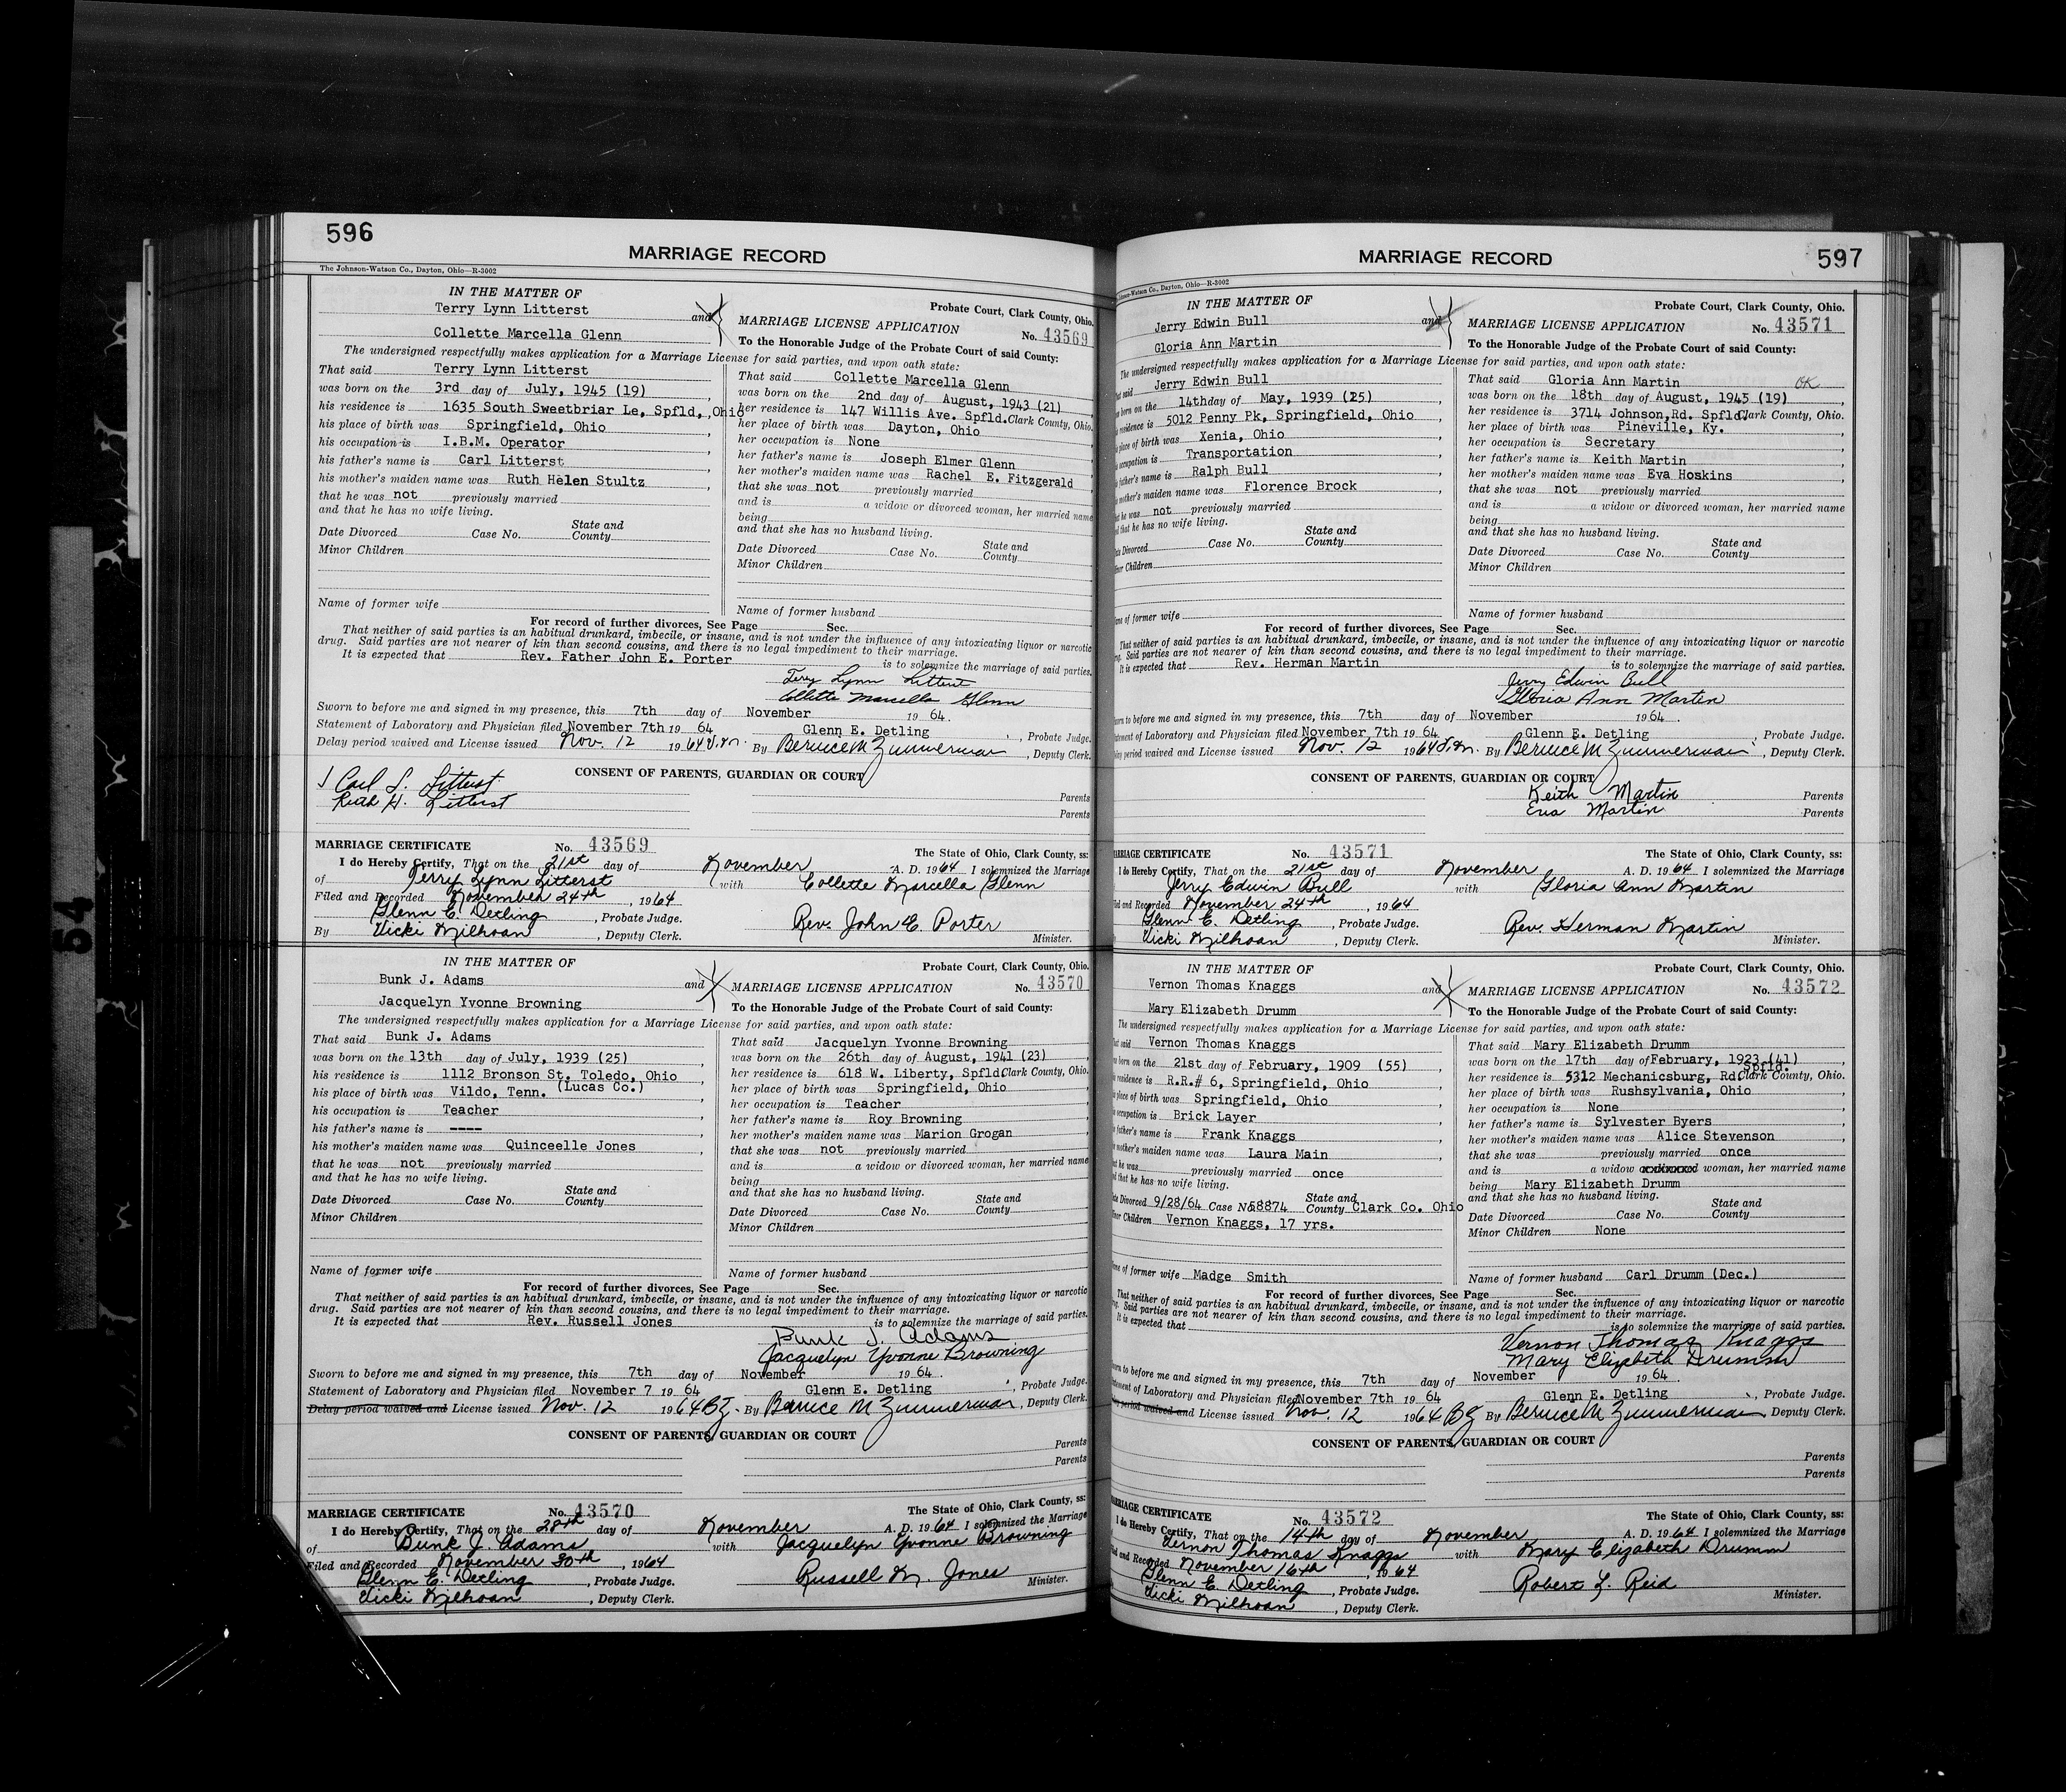 596
MARRIAGE RECORD
The Johnson-Watson Co., Dayton, Ohio—R-3002
IN THE MATTER OF
Terry Lynn Litterst
and
Collette Marcella Glenn
Probate Court, Clark County, Ohio.
MARRIAGE LICENSE APPLICATION No. 43569
To the Honorable Judge of the Probate Court of said County:
The undersigned respectfully makes application for a Marriage License for said parties, and upon oath state:
That said Terry Lynn Litterst
was born on the 3rd day of July, 1945 (19)
his residence is 1635 South Sweetbriar Le, Spfld., Ohio
his place of birth was Springfield, Ohio
his occupation is I.B.M. Operator
his father's name is Carl Litterst
his mother's maiden name was Ruth Helen Stultz
that he was not previously married
and that he has no wife living.
Date Divorced Case No. State and County
Minor Children
Name of former wife
That said Collette Marcella Glenn
was born on the 2nd day of August, 1943 (21)
her residence is 147 Willis Ave. Spfld. Clark County, Ohio.
her place of birth was Dayton, Ohio
her occupation is None
her father's name is Joseph Elmer Glenn
her mother's maiden name was Rachel E. Fitzgerald
that she was not previously married
and is a widow or divorced woman, her married name
being
and that she has no husband living.
Date Divorced Case No. State and County
Minor Children
Name of former husband
For record of further divorces, See Page Sec.
That neither of said parties is an habitual drunkard, imbecile, or insane, and is not under the influence of any intoxicating liquor or narcotic
drug. Said parties are not nearer of kin than second cousins, and there is no legal impediment to their marriage.
It is expected that Rev. Father John E. Porter is to solemnize the marriage of said parties.
Terry Lynn Litterst
Collette Marcella Glenn
Sworn to before me and signed in my presence, this 7th day of November 1964.
Statement of Laboratory and Physician filed November 7th 1964 Glenn E. Detling , Probate Judge.
Delay period waived and License issued Nov. 12 1964 V.m. By Bernice M Zimmerman , Deputy Clerk.
CONSENT OF PARENTS, GUARDIAN OR COURT
Carl L. Litterst
Ruth H. Litterst
Parents
Parents
MARRIAGE CERTIFICATE No. 43569 The State of Ohio, Clark County, ss:
I do Hereby Certify, That on the 21st day of November A. D. 1964 I solemnized the Marriage
of Terry Lynn Litterst with Collette Marcella Glenn
Filed and Recorded November 24th , 1964
Glenn E. Detling , Probate Judge. Rev. John E Porter
By Vicki Milhoan , Deputy Clerk. Minister.
IN THE MATTER OF
Bunk J. Adams
and
Jacquelyn Yvonne Browning
Probate Court, Clark County, Ohio.
MARRIAGE LICENSE APPLICATION No. 43570
To the Honorable Judge of the Probate Court of said County:
The undersigned respectfully makes application for a Marriage License for said parties, and upon oath state:
That said Bunk J. Adams
was born on the 13th day of July, 1939 (25)
his residence is 1112 Bronson St. Toledo, Ohio
his place of birth was Vildo, Tenn. (Lucas Co.)
his occupation is Teacher
his father's name is ----
his mother's maiden name was Quinceelle Jones
that he was not previously married
and that he has no wife living.
Date Divorced Case No. State and County
Minor Children
Name of former wife
That said Jacquelyn Yvonne Browning
was born on the 26th day of August, 1941 (23)
her residence is 618 W. Liberty, Spfld. Clark County, Ohio.
her place of birth was Springfield, Ohio
her occupation is Teacher
her father's name is Roy Browning
her mother's maiden name was Marion Grogan
that she was not previously married
and is a widow or divorced woman, her married name
being
and that she has no husband living.
Date Divorced Case No. State and County
Minor Children
Name of former husband
For record of further divorces, See Page Sec.
That neither of said parties is an habitual drunkard, imbecile, or insane, and is not under the influence of any intoxicating liquor or narcotic
drug. Said parties are not nearer of kin than second cousins, and there is no legal impediment to their marriage.
It is expected that Rev. Russell Jones is to solemnize the marriage of said parties.
Bunk J. Adams
Jacquelyn Yvonne Browning
Sworn to before me and signed in my presence, this 7th day of November 1964.
Statement of Laboratory and Physician filed November 7 1964 Glenn E. Detling , Probate Judge.
Delay period waived and License issued Nov. 12 1964 BZ. By Bernice M Zimmerman, Deputy Clerk.
CONSENT OF PARENTS, GUARDIAN OR COURT
Parents
Parents
MARRIAGE CERTIFICATE No. 43570 The State of Ohio, Clark County, ss:
I do Hereby Certify, That on the 28th day of November A. D. 1964 I solemnized the Marriage
of Bunk J. Adams with Jacquelyn Yvonne Browning
Filed and Recorded November 30th , 1964
Glenn E. Detling , Probate Judge. Russell M. Jones
Vicki Milhoan , Deputy Clerk. Minister.
MARRIAGE RECORD
597
Johnson-Watson Co., Dayton, Ohio—R-3002
IN THE MATTER OF
Jerry Edwin Bull
and
Gloria Ann Martin
Probate Court, Clark County, Ohio.
MARRIAGE LICENSE APPLICATION No. 43571
To the Honorable Judge of the Probate Court of said County:
The undersigned respectfully makes application for a Marriage License for said parties, and upon oath state:
said Jerry Edwin Bull
born on the 14th day of May, 1939 (25)
residence is 5012 Penny Pk, Springfield, Ohio
place of birth was Xenia, Ohio
occupation is Transportation
father's name is Ralph Bull
mother's maiden name was Florence Brock
he was not previously married
that he has no wife living.
Divorced Case No. State and County
Children
of former wife
That said Gloria Ann Martin OK
was born on the 18th day of August, 1945 (19)
her residence is 3714 Johnson Rd. Spfld. Clark County, Ohio.
her place of birth was Pineville, Ky.
her occupation is Secretary
her father's name is Keith Martin
her mother's maiden name was Eva Hoskins
that she was not previously married
and is a widow or divorced woman, her married name
being
and that she has no husband living.
Date Divorced Case No. State and County
Minor Children
Name of former husband
For record of further divorces, See Page Sec.
That neither of said parties is an habitual drunkard, imbecile, or insane, and is not under the influence of any intoxicating liquor or narcotic
Said parties are not nearer of kin than second cousins, and there is no legal impediment to their marriage.
It is expected that Rev. Herman Martin is to solemnize the marriage of said parties.
Jerry Edwin Bull
Gloria Ann Martin
to before me and signed in my presence, this 7th day of November 1964.
of Laboratory and Physician filed November 7th 1964 Glenn E. Detling , Probate Judge.
period waived and License issued Nov. 12 1964 V.m. By Bernice M Zimmerman , Deputy Clerk.
CONSENT OF PARENTS, GUARDIAN OR COURT
Keith Martin Parents
Eva Martin Parents
MARRIAGE CERTIFICATE No. 43571 The State of Ohio, Clark County, ss:
I do Hereby Certify, That on the 21st day of November A. D. 1964 I solemnized the Marriage
Jerry Edwin Bull with Gloria Ann Martin
and Recorded November 24th , 1964
Glenn E. Detling , Probate Judge. Rev. Herman Martin
Vicki Milhoan , Deputy Clerk. Minister.
IN THE MATTER OF
Vernon Thomas Knaggs
and
Mary Elizabeth Drumm
Probate Court, Clark County, Ohio.
MARRIAGE LICENSE APPLICATION No. 43572
To the Honorable Judge of the Probate Court of said County:
The undersigned respectfully makes application for a Marriage License for said parties, and upon oath state:
said Vernon Thomas Knaggs
born on the 21st day of February, 1909 (55)
residence is R.R.# 6, Springfield, Ohio
place of birth was Springfield, Ohio
occupation is Brick Layer
father's name is Frank Knaggs
mother's maiden name was Laura Main
he was previously married once
that he has no wife living.
Divorced 9/28/64 Case No. 58874 State and County Clark Co. Ohio
Children Vernon Knaggs, 17 yrs.
of former wife Madge Smith
That said Mary Elizabeth Drumm
was born on the 17th day of February, 1923 (41)
her residence is 5312 Mechanicsburg, Rd. Spfld. Clark County, Ohio.
her place of birth was Rushsylvania, Ohio
her occupation is None
her father's name is Sylvester Byers
her mother's maiden name was Alice Stevenson
that she was previously married once
and is a widow xxxxxxxx woman, her married name
being Mary Elizabeth Drumm
and that she has no husband living.
Date Divorced Case No. State and County
Minor Children None
Name of former husband Carl Drumm (Dec.)
For record of further divorces, See Page Sec.
That neither of said parties is an habitual drunkard, imbecile, or insane, and is not under the influence of any intoxicating liquor or narcotic
Said parties are not nearer of kin than second cousins, and there is no legal impediment to their marriage.
It is expected that is to solemnize the marriage of said parties.
Vernon Thomas Knaggs
Mary Elizabeth Drumm
to before me and signed in my presence, this 7th day of November 1964.
of Laboratory and Physician filed November 7th 1964 Glenn E. Detling , Probate Judge.
period waived and License issued Nov. 12 1964 BZ By Bernice M Zimmerman Deputy Clerk.
CONSENT OF PARENTS, GUARDIAN OR COURT
Parents
Parents
MARRIAGE CERTIFICATE No. 43572 The State of Ohio, Clark County, ss:
I do Hereby Certify, That on the 14th day of November A. D. 1964 I solemnized the Marriage
Vernon Thomas Knaggs with Mary Elizabeth Drumm
and Recorded November 16th , 1964
Glenn E. Detling , Probate Judge. Robert L. Reid
Vicki Milhoan , Deputy Clerk. Minister.
54